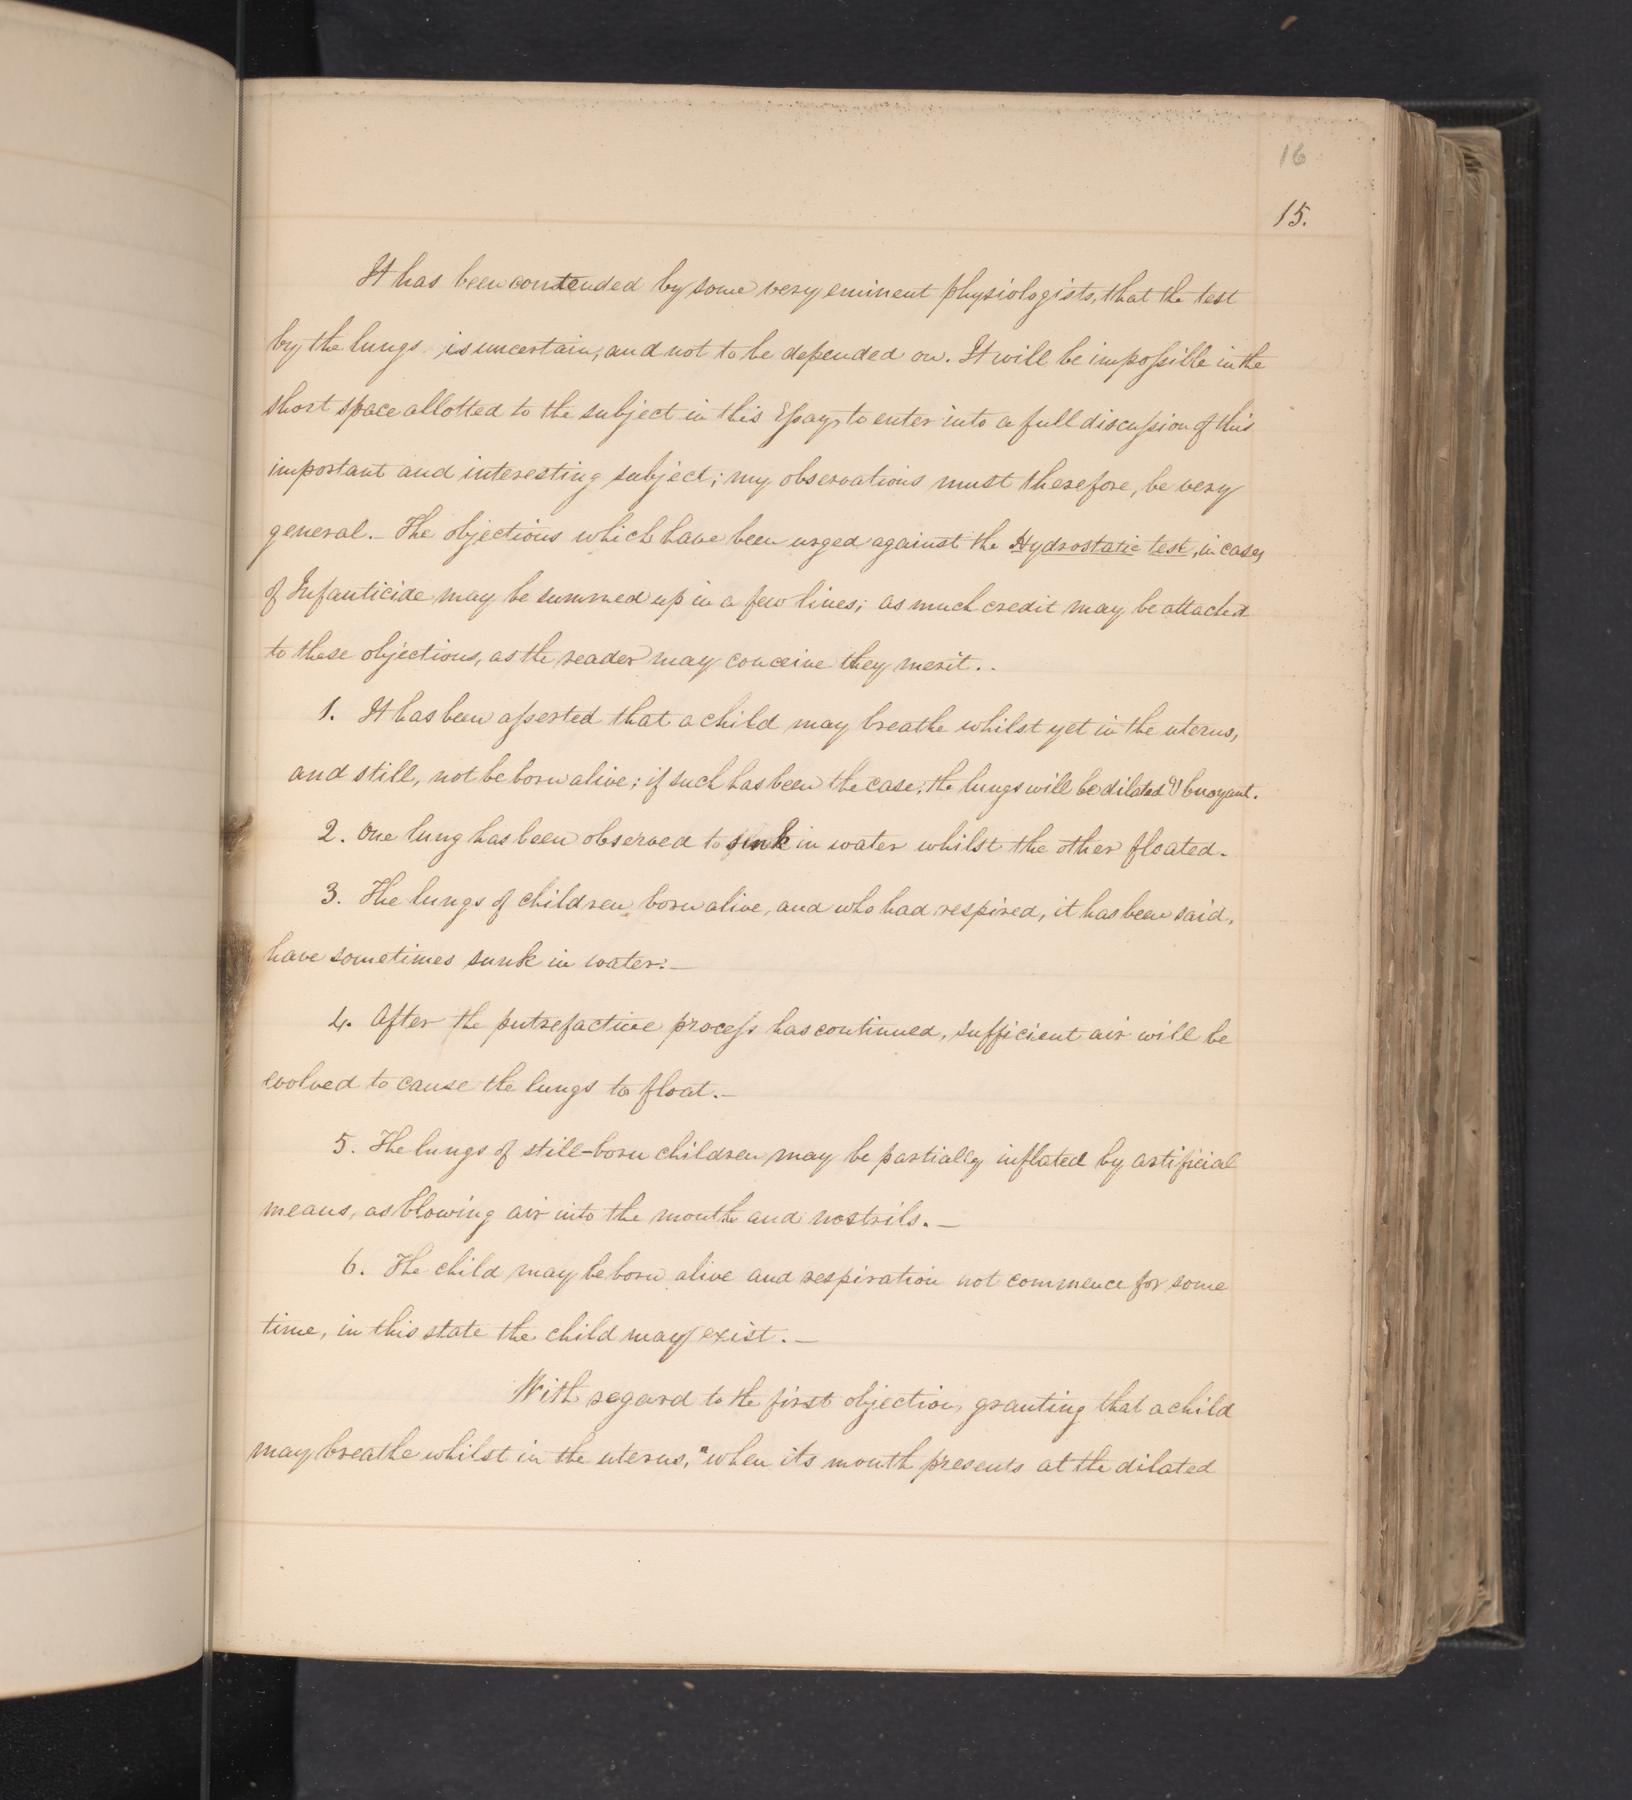 16
15.
It has been contended by some very eminent physiologists, that the test
by the lungs is uncertain, and not to be depended on. It will be impossible in the
short space allotted to the subject in this Essay, to enter into a full discussion of this
important and interesting subject; my observations must therefore, be very
general. – The objections which have been urged against the Hydrostatic test, in cases
of Infanticide may be summed up in a few lines; as much credit may be attached
to these objections, as the reader may conceive they merit. .
1. It has been asserted that a child may breathe whilst yet in the uterus,
and still, not be born alive; if such has been the case, the lungs will be dilated & buoyant.
2. One lung has been observed to sink in water whilst the other floated.
3. The lungs of children born alive, and who had respired, it has been said,
have sometimes sunk in water: –
4. After the putrefactive process has continued, sufficient air will be
evolved to cause the lungs to float. –
5. The lungs of still-born children may be partially inflated by artificial
means, as blowing air into the mouth and nostrils. –
6. The child may be born alive and respiration not commence for some
time, in this state the child may exist. –
With regard to the first objection, granting that a child
may breathe whilst in the uterus, "when its mouth presents at the dilated